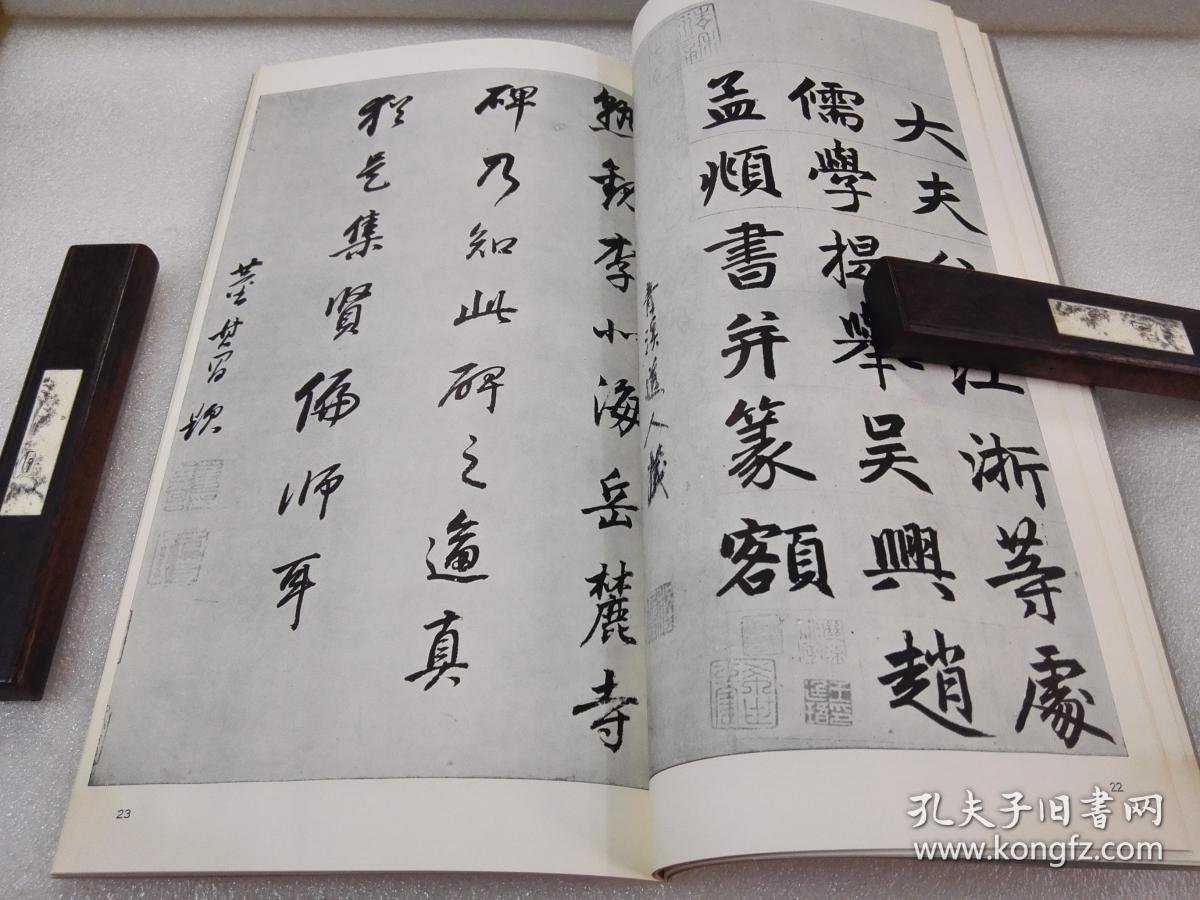 大夫江淛等處
儒學提舉吳興趙
孟頫書并篆額
青溪道人藏
觀李北海岳麓寺
碑乃知此碑之逼真
猶是集賢偏師耳
董其昌題
23
22
孔夫子旧书网
www.kongfz.com